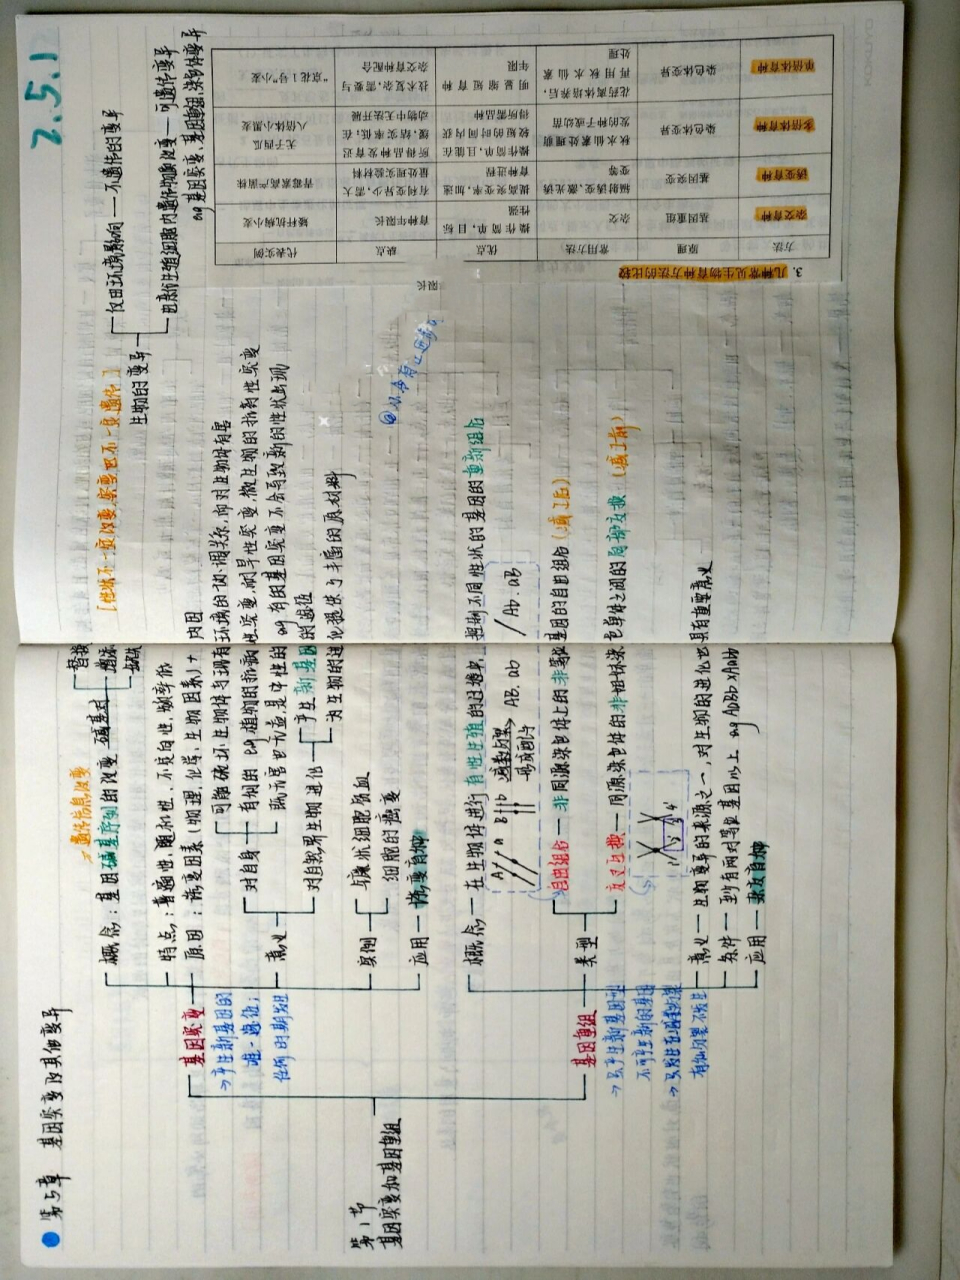 2.5.1
第5章 基因突变及其他变异
第1节
基因突变和基因重组
基因突变
→产生新基因的
唯一途径;
任何时期发生
遗传信息改变
概念:基因碱基序列的改变 碱基对
替换
增添
缺失
特点:普遍性、随机性、不定向性、频率低
原因:诱变因素(物理、化学、生物因素)+ 内因
意义
对自身
可能破坏生物体与现有环境的协调关系,而对生物体有害
有的基因突变不会导致新的性状出现
对自然界生物进化
产生新基因的途径
为生物的进化提供了丰富的原材料
实例
镰状细胞贫血
细胞的癌变
应用—诱变育种
[性状不一定改变,突变也不一定遗传]
生物的变异
仅由环境影响——不遗传的变异
由亲代生殖细胞内遗传物质改变——可遗传变异
eg 基因突变、基因重组、染色体变异
基因重组
→只产生新基因型
不可产生新的基因
概念—在生物体进行有性生殖的过程中,控制不同性状的基因的重新组合
A a B b
AB、ab
/Ab、aB
类型
自由组合—非同源染色体上的非等位基因的自由组合(减Ⅰ后)
交叉互换—同源染色体的非姐妹染色单体之间的局部互换(减Ⅰ前)
意义—生物变异的来源之一,对生物的进化也具有重要意义
条件—到少有两对等位基因以上 eg AaBb×AaBb
应用—杂交育种
限长
3. 几种常见生物育种方法的比较
方法 原理 常用方法 优点 缺点 代表实例
杂交育种 基因重组 杂交 操作简单,目标性强 育种年限长 矮秆抗病小麦
诱变育种 基因突变 辐射诱变、激光诱变等 提高突变率,加速育种进程 有利变异少,需大量处理实验材料 青霉素高产菌株
多倍体育种 染色体变异 秋水仙素处理萌发的种子或幼苗 操作简单,且能在较短的时间内获得所需品种 所得品种发育迟缓,结实率低;在动物中无法开展 无子西瓜 八倍体小黑麦
单倍体育种 染色体变异 花药离体培养后,再用秋水仙素处理 明显缩短育种年限 技术复杂,需要与杂交育种配合 “京花1号”小麦